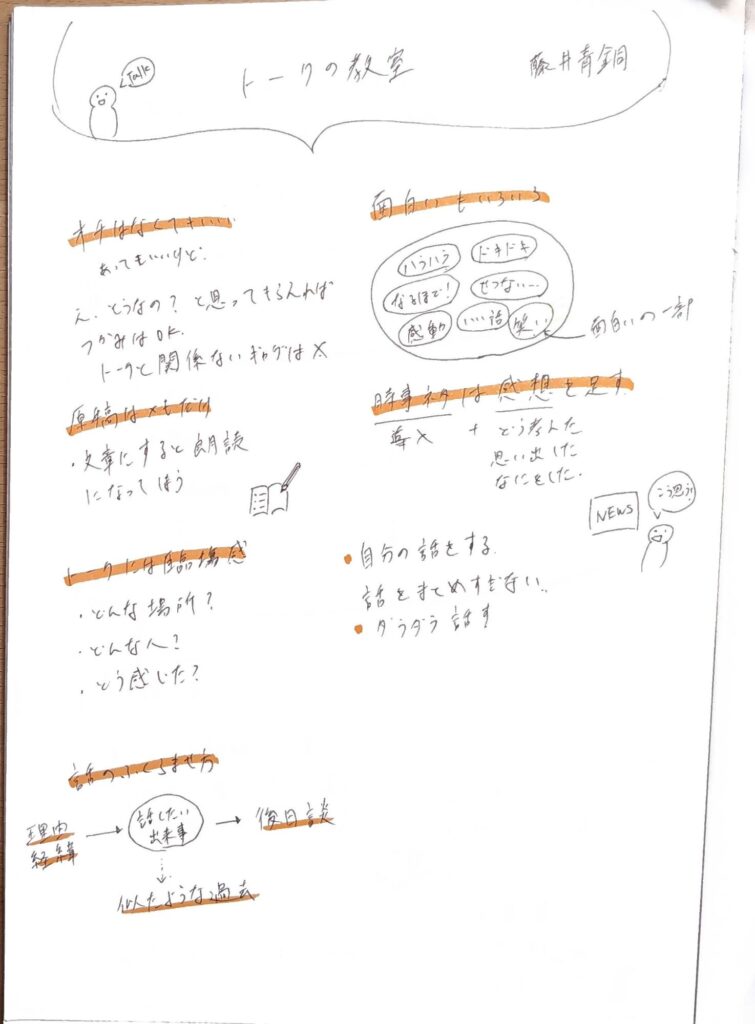 Talk
トークの教室
藤井青銅
オチはなくてもいい
あってもいいけど.
え.どうなの？と思ってもらえれば
つかみはOK.
トークと関係ないギャグは×
原稿はメモだけ
・文章にすると朗読
になってしまう
トークには臨場感
・どんな場所？
・どんな人？
・どう感じた？
話のふくらませ方
理由
経緯
話したい
出来事
後日談
似たような過去
面白いもいろいろ
ハラハラ
ドキドキ
なるほど！
せつない…
感動
いい話
笑い
面白いの一部
時事ネタは感想を足す
+ どう考えた
思い出した
なにをした.
NEWS
こう思う!
・自分の話をする.
話をまとめすぎない.
・ダラダラ話す